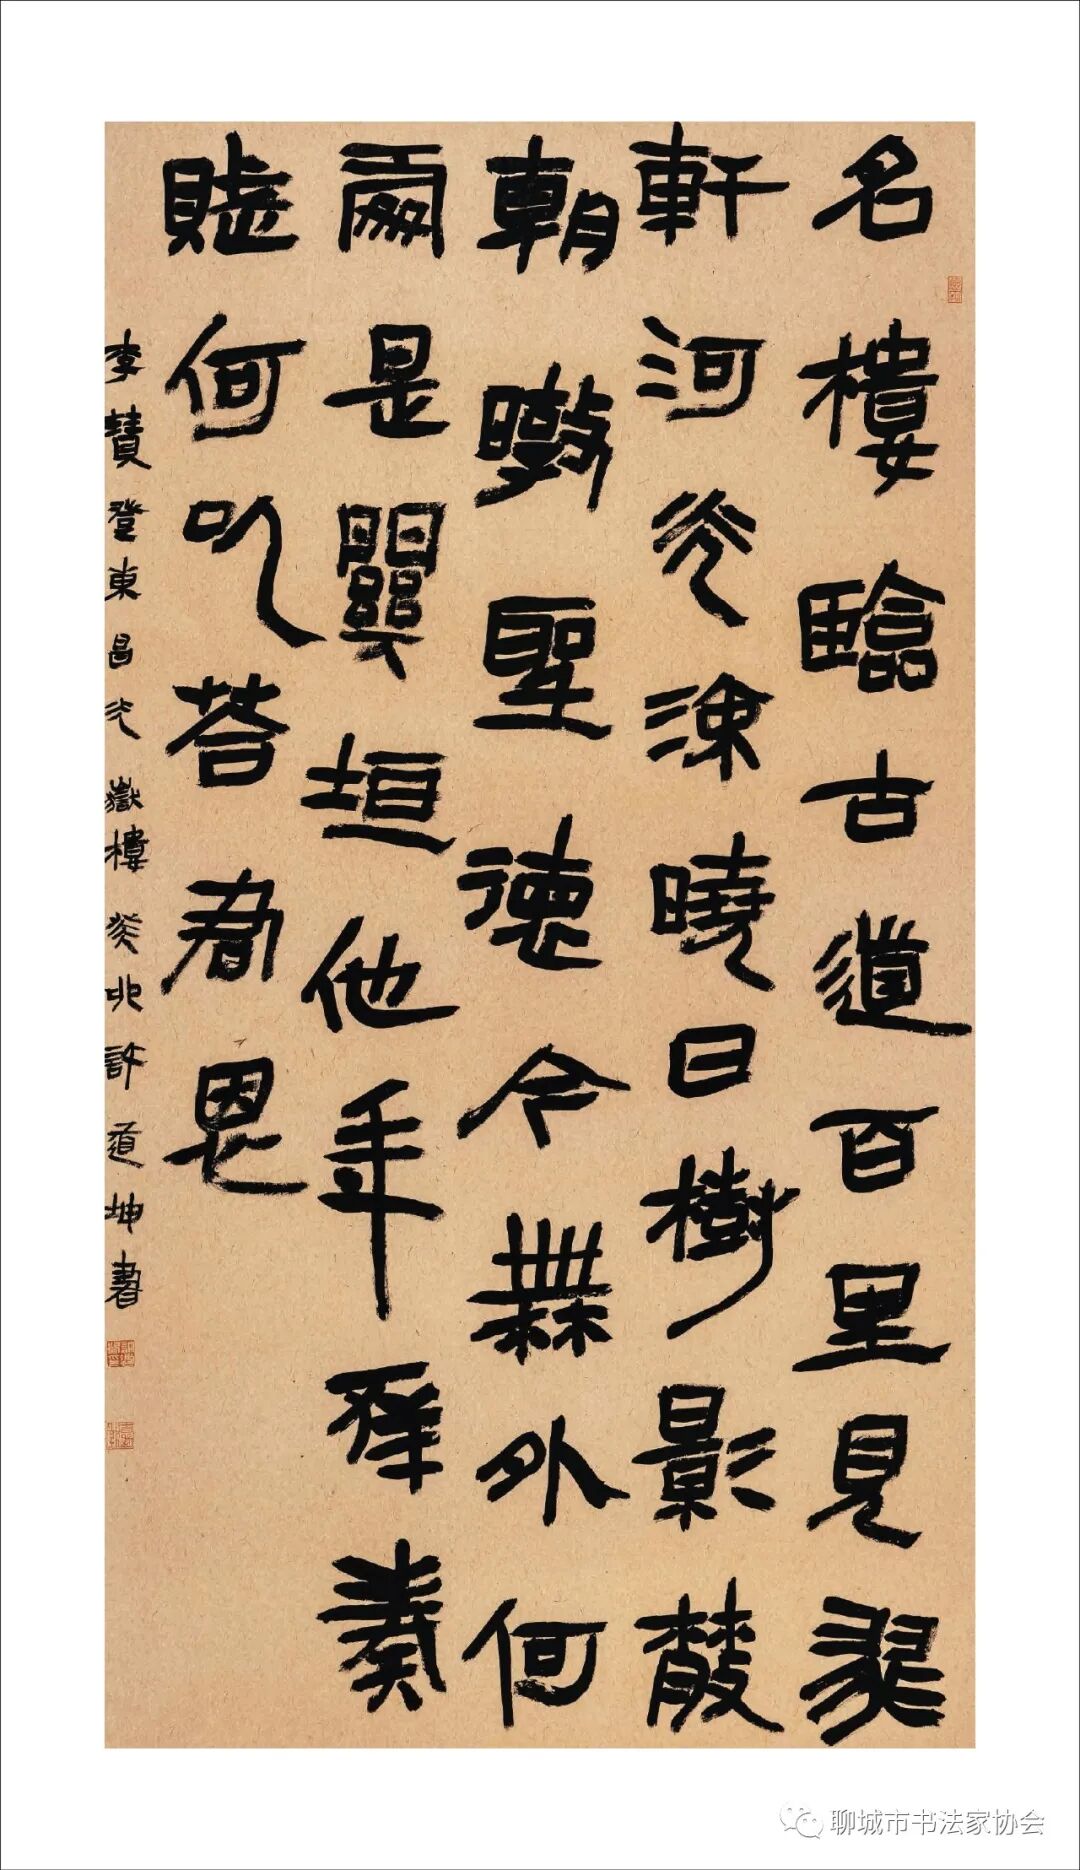 名樓臨古道百里見飛
軒河光涷曉日樹影散
朝暾聖德今無外何
爾是垣他年奏
賦何以答君恩
李贊登東昌光嶽樓 癸卯許道坤書
聊城市书法家协会